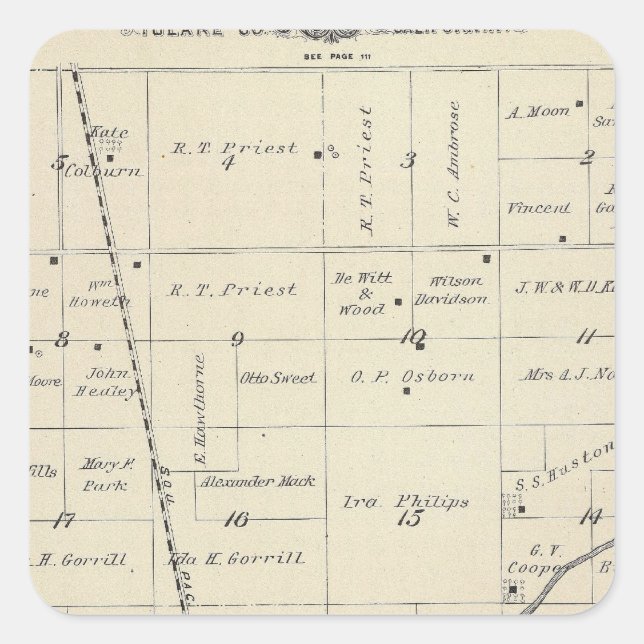 TULARE CO. CALIFORNIA
SEE PAGE 111
Kate
5
Colburn
R. T. Priest
4
R. T. Priest
3
W. C. Ambrose
A. Moon
2
Vincent
Wm
Howeth
R. T. Priest
De Witt
&
Wood
Wilson
Davidson
J. W. & W. D.
8
9
10
11
Moore
John
Healey
E. Hawthorne
Otto Sweet
O. P. Osborn
Mrs A. J.
Mary F.
Park
Alexander Mack
Ira Philips
S. S. Huston
SOU. PAC.
17
16
15
14
H. Gorrill
Ida H. Gorrill
G. V.
Cooper